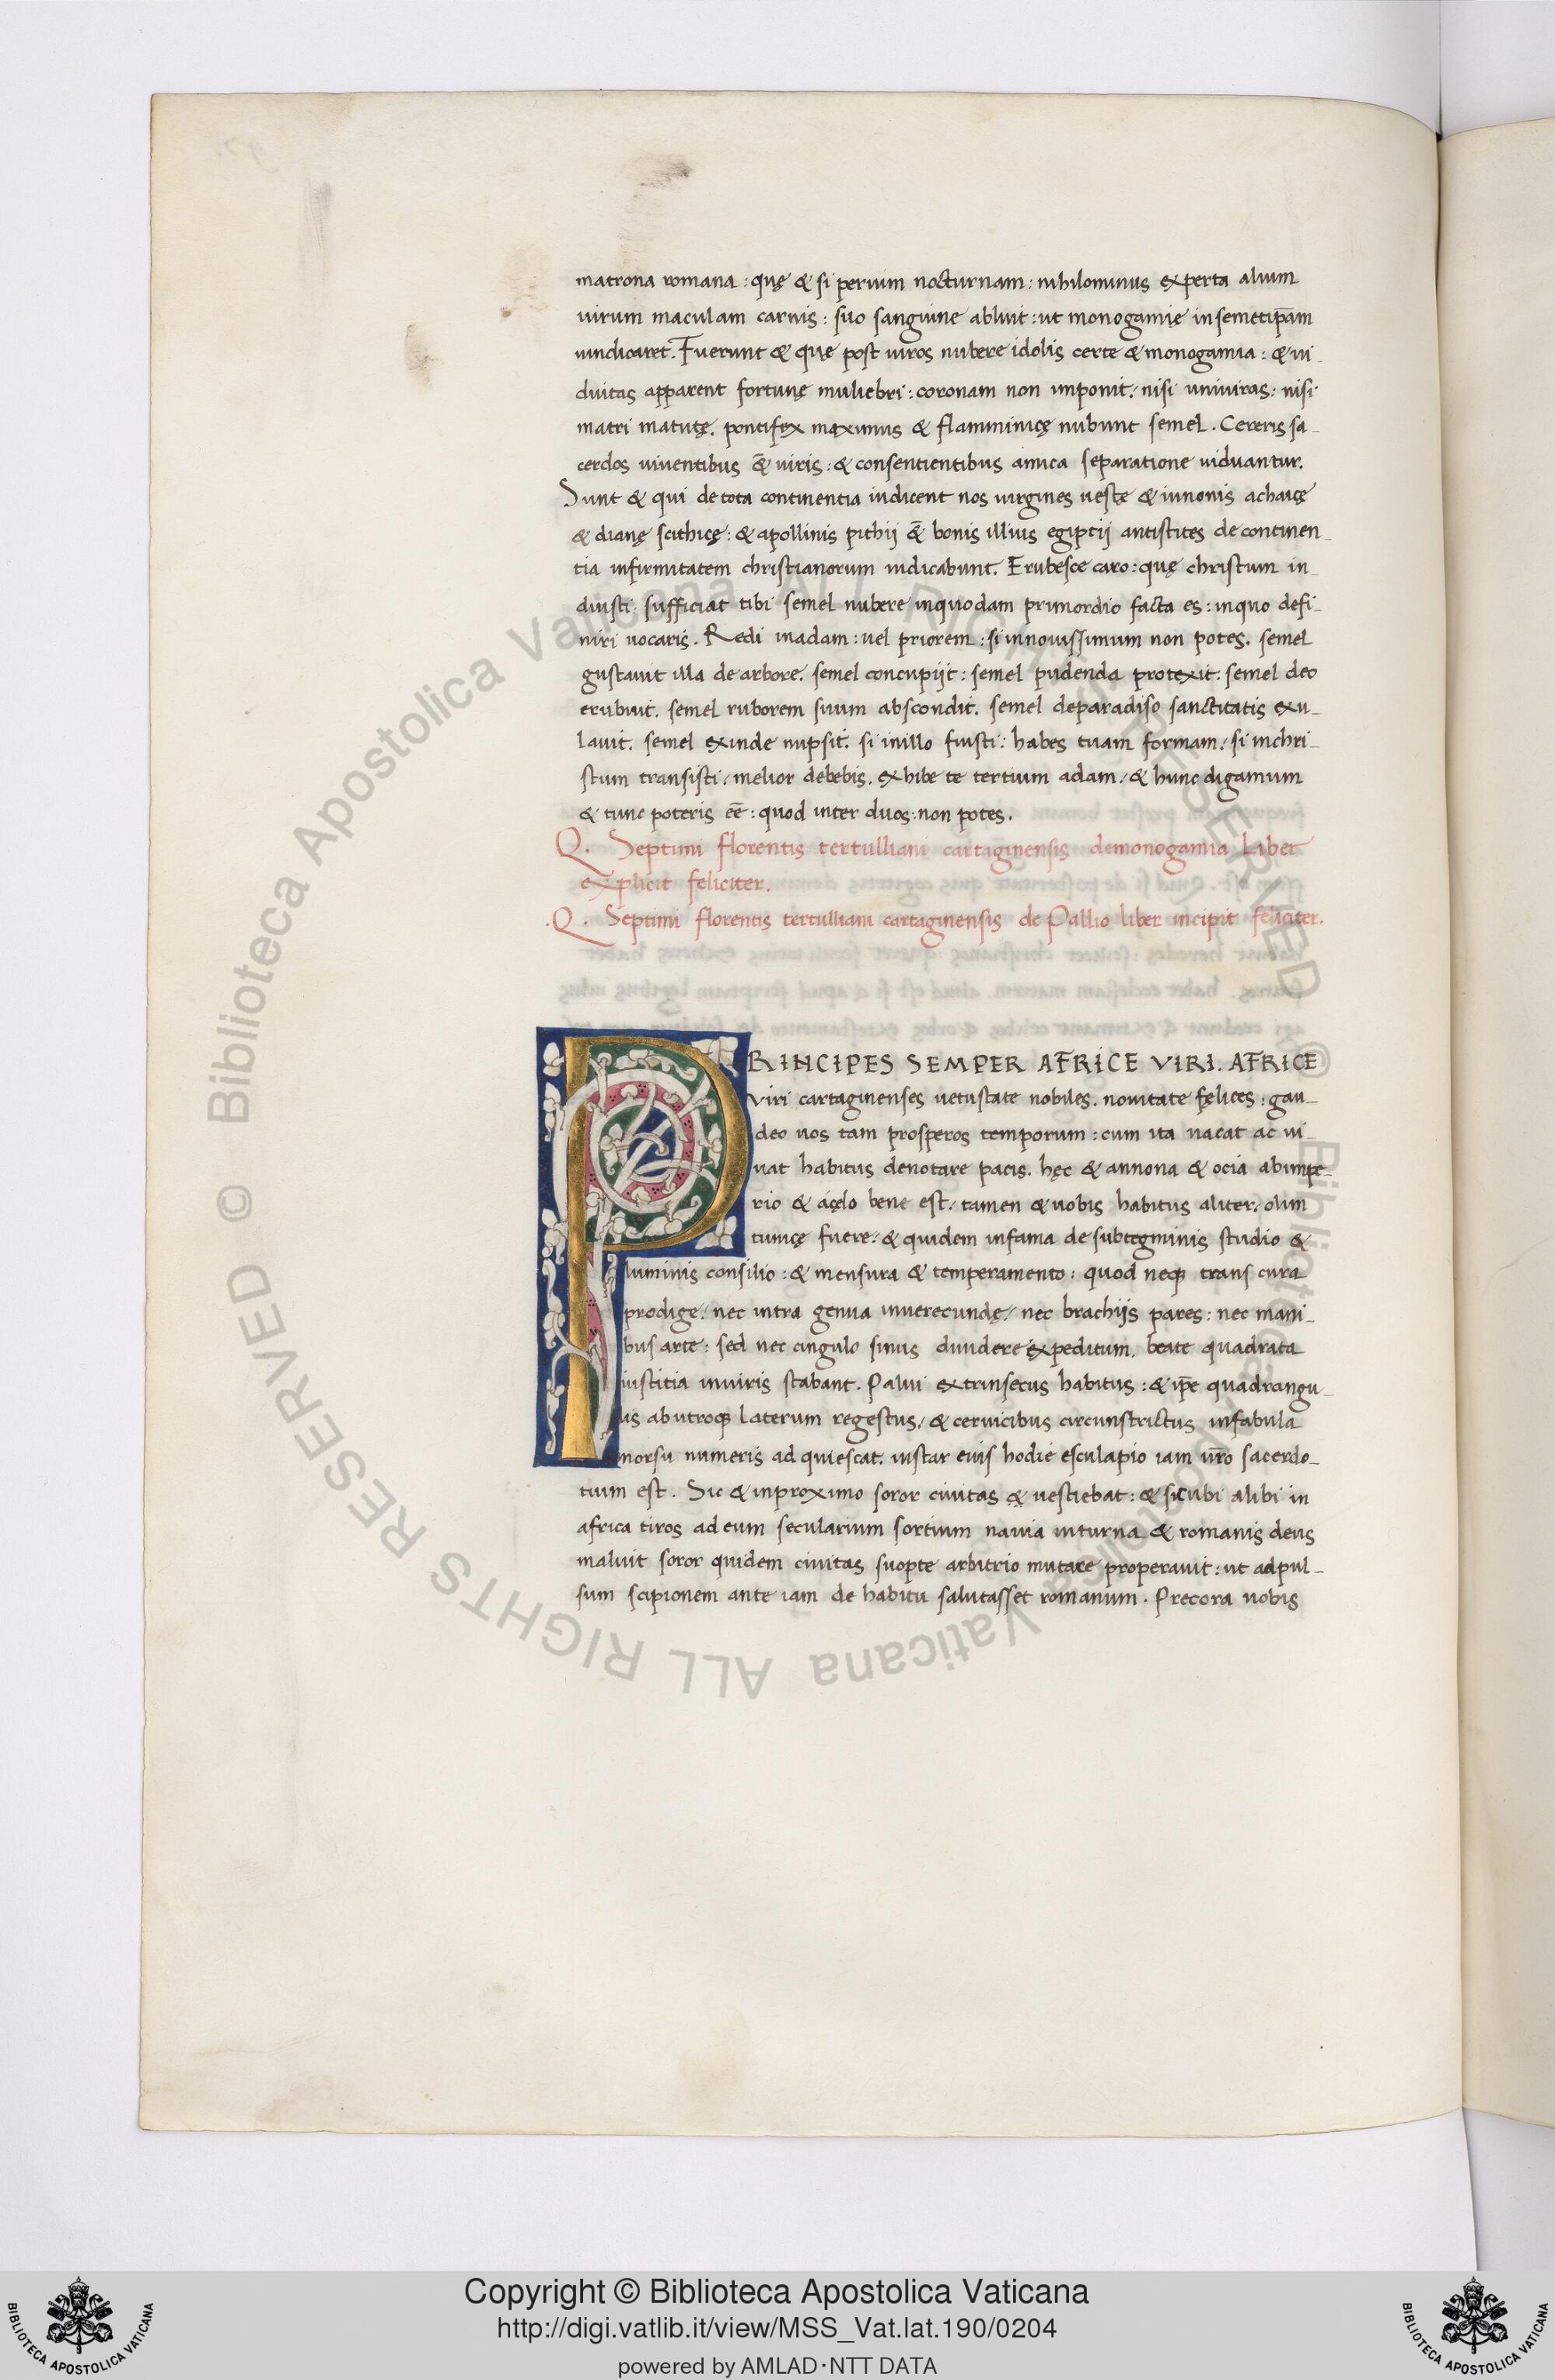 matrona romana : quę & si peruim nocturnam : nihilominus experta alium
uirum maculam carnis : suo sanguine abluit : ut monogamię insemetip̄am
uindicaret. Fuerunt & quę post uiros nubere idolis certe & monogamia : & ui-
duitas apparent fortunę muliebri : coronam non imponit : nisi uniuiras : nisi
matri matutę. pontifex maximus & flamminicę nubunt semel . Cereris sa-
cerdos uiuentibus & uiris : & consentientibus amica separatione uiduantur.
Sunt & qui detota continentia iudicent nos uirgines uestę & iunonis achaicę
& dianę scithicę : & apollinis pithij & bonis illius egiptij antistites de continen-
tia infirmitatem christianorum iudicabunt. Erubesce caro : quę christum in-
duisti : sufficiat tibi semel nubere inquodam primordio facta es : inquo defi-
niri uocaris . Redi inadam : uel priorem : si innouissimum non potes. semel
gustauit illa dearbore. semel concupijt : semel pudenda protexit : semel deo
erubuit. semel ruborem suum abscondit. semel deparadiso sanctitatis exu-
lauit. semel exinde nupsit. si inillo fuisti : habes tuam formam : si inchri-
stum transisti : melior debebis. exhibe te tertium adam : & hunc digamum
& tunc poteris eē : quod inter duos : non potes .
Q. Septimi florentis tertulliani cartaginensis demonogamia Liber
explicit feliciter.
.Q. Septimi florentis tertulliani cartaginensis de Pallio liber incipit feliciter.
PRINCIPES SEMPER AFRICE VIRI. AFRICE
Viri cartaginenses uetustate nobiles. nouitate fęlices : gau-
deo uos tam prosperos temporum : cum ita uacat ac ui-
uat habitus denotare pacis. hęc & annona & ocia abimpe-
rio & acęlo bene est : tamen & uobis habitus aliter : olim
tunicę fuere : & quidem infama de subtegminis studio &
luminis consilio : & mensura & temperamento : quod neq; trans cura
prodige : nec intra genua inuerecundę : nec brachijs pares : nec mani-
bus arte : sed nec cingulo sinus diuidere expeditum. beate quadrata
iustitia inuiris stabant. Palui extrinsecus habitus : & ip̄e quadrangu-
us abutroq; laterum regestus : & ceruicibus circunstrictus infabula
morsu numeris ad quiescat. instar euis hodie esculapio iam ur̄o sacerdo-
tium est . Sic & inproximo soror ciuitas & uestiebat : & sicubi alibi in
africa tiros ad eum secularium sortium nauia inturna & romanis deus
maluit soror quidem ciuitas suopte arbitrio mutare properauit : ut adpul-
sum scipionem ante iam de habitu salutasset romanum . Precora uobis
© Biblioteca Apostolica Vaticana ALL RIGHTS RESERVED
Copyright © Biblioteca Apostolica Vaticana
http://digi.vatlib.it/view/MSS_Vat.lat.190/0204
powered by AMLAD·NTT DATA
BIBLIOTECA APOSTOLICA VATICANA
BIBLIOTECA APOSTOLICA VATICANA